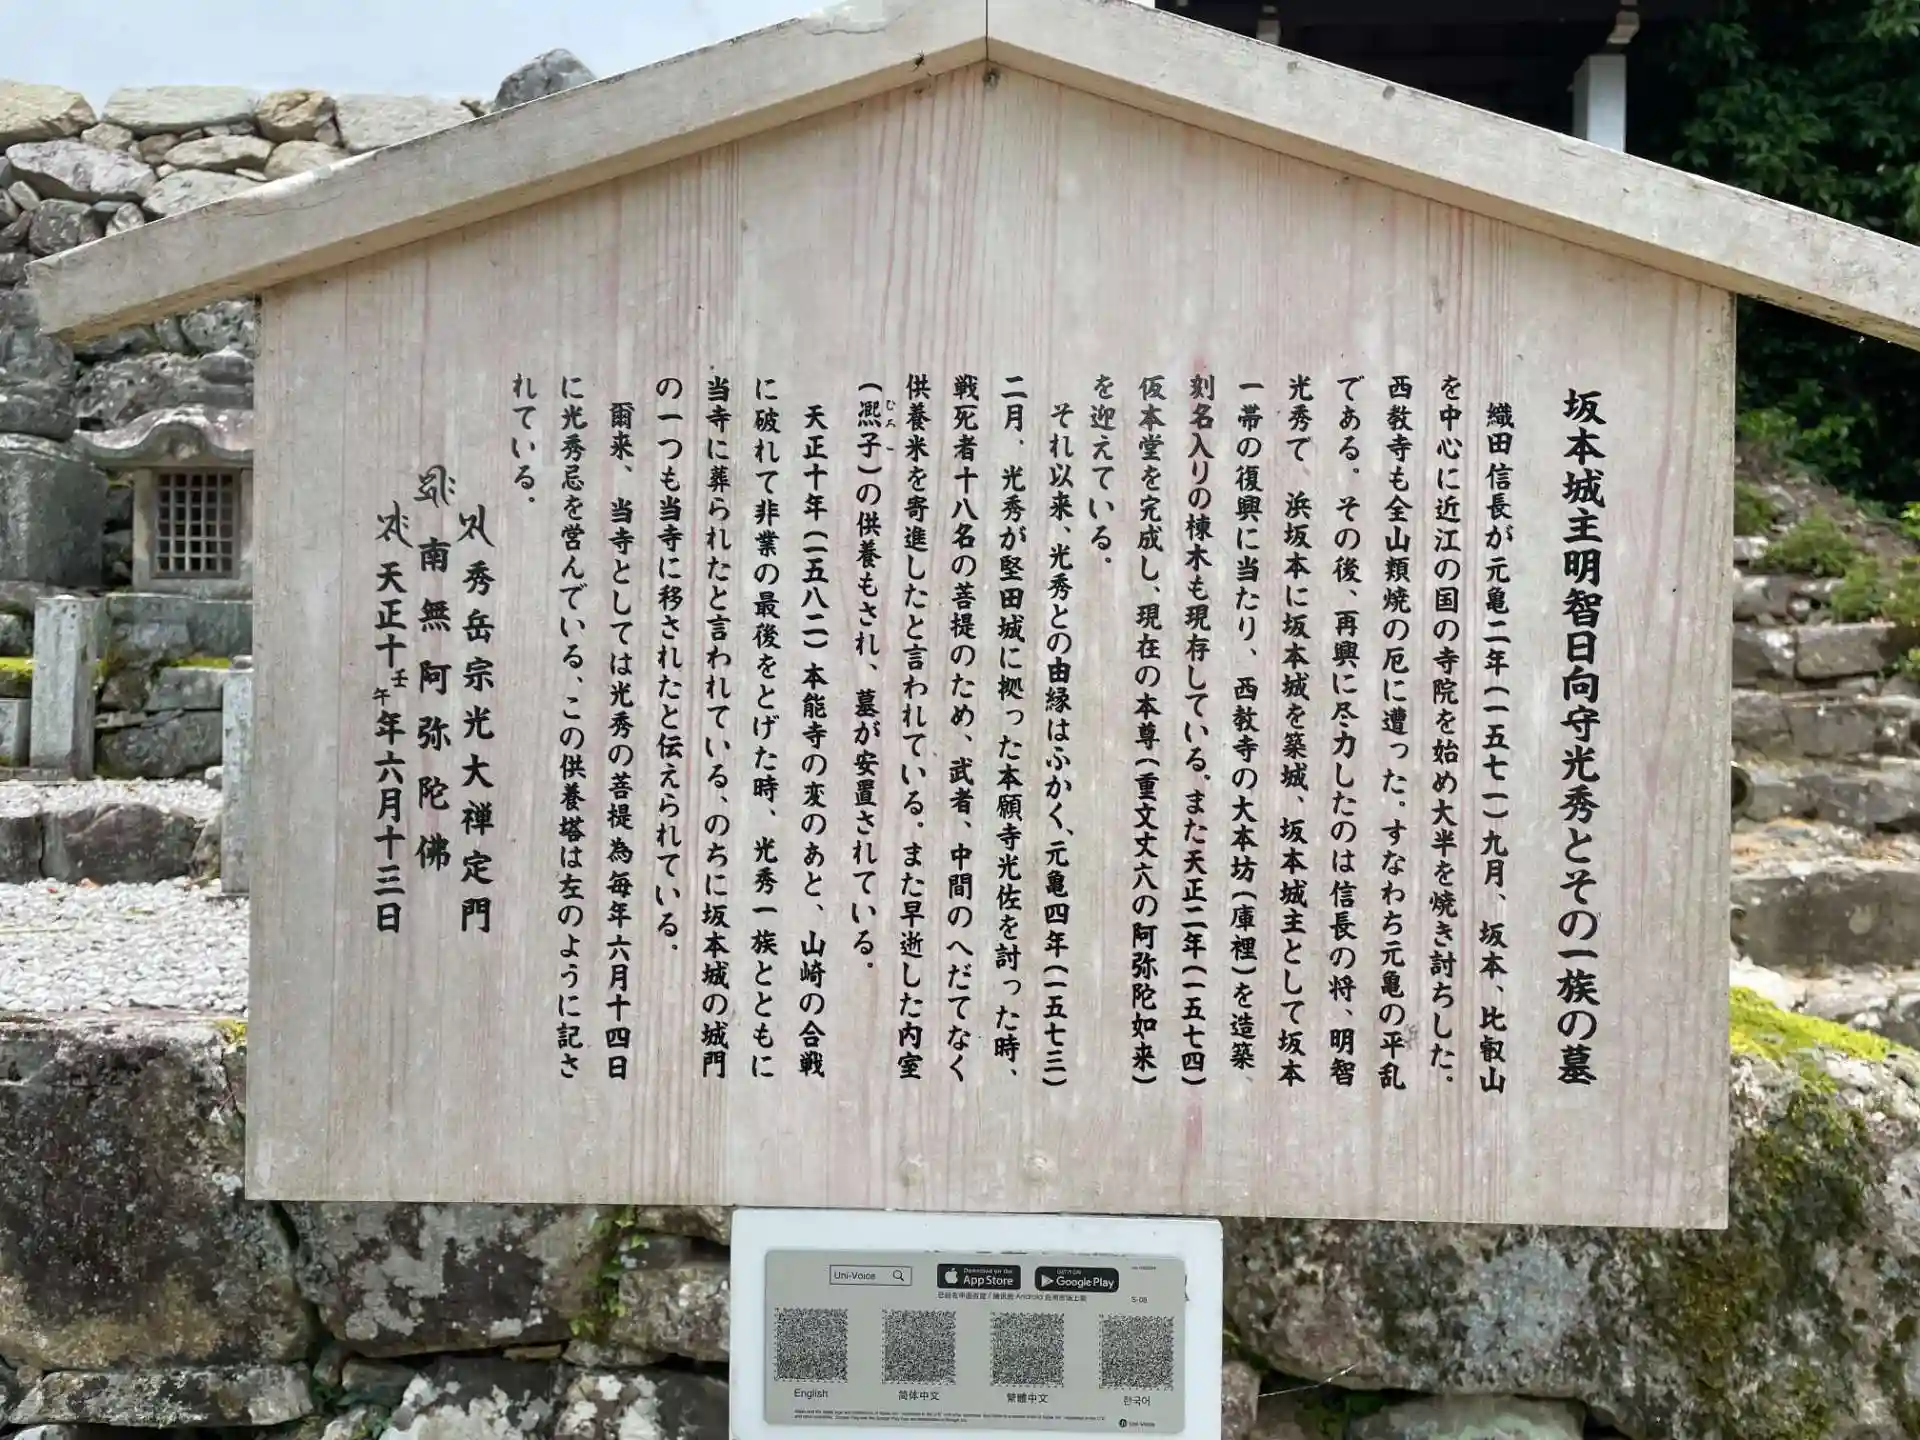 坂本城主明智日向守光秀とその一族の墓
織田信長が元亀二年(一五七一)九月、坂本、比叡山
を中心に近江の国の寺院を始め大半を焼き討ちした。
西教寺も全山類焼の厄に遭った。すなわち元亀の平乱
である。その後、再興に尽力したのは信長の将、明智
光秀で、浜坂本に坂本城を築城、坂本城主として坂本
一帯の復興に当たり、西教寺の大本坊(庫裡)を造築、
刻名入りの棟木も現存している。また天正二年(一五七四)
仮本堂を完成し、現在の本尊(重文丈六の阿弥陀如来)
を迎えている。
それ以来、光秀との由縁はふかく、元亀四年(一五七三)
二月、光秀が堅田城に拠った本願寺光佐を討った時、
戦死者十八名の菩提のため、武者、中間のへだてなく
供養米を寄進したと言われている。また早逝した内室
(凞子)の供養もされ、墓が安置されている。
天正十年(一五八二)本能寺の変のあと、山崎の合戦
に破れて非業の最後をとげた時、光秀一族とともに
当寺に葬られたと言われている、のちに坂本城の城門
の一つも当寺に移されたと伝えられている。
爾来、当寺としては光秀の菩提為毎年六月十四日
に光秀忌を営んでいる、この供養塔は左のように記さ
れている。
秀岳宗光大禅定門
南無阿弥陀佛
天正十壬午年六月十三日
Uni-Voice
Download on the App Store
GET IT ON Google Play
S-08
English
简体中文
繁體中文
한국어
Uni-Voice